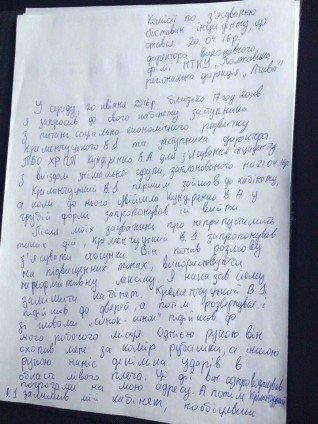 Комісії по з'ясуванню
обставин інциденту, що
стався 20.04.16р.
директора виконавчого
філії НТКУ „Полтавська
регіональна дирекція „Лтава"
У середу, 20 квітня 2016р. близько 17 год 20хв.
я запросив до свого кабінету заступника
з питань соціально-економічного розвитку
Кременчуцького В.І. та заступника директора
ТВО Кундренко В.А. для з'ясування інциденту
з виїздом знімальної групи, запланованого на 21.04.ц.р
Кременчуцький В.І. першим зайшов до кабінету,
а коли до нього увійшла Кундренко В.А. у
грубій формі запропонував їй вийти.
Після моїх зауважень про неприпустимість
таких дій Кременчуцький В.І. запропонував
з'ясувати стосунки. Він почав розмову
на підвищених тонах, використовуючи
ненормативну лексику. Я наказав йому
залишити кабінет. Кременчуцький В.І.
підійшов до дверей, а потім розвернувся і
зі словами підійшов до
мого робочого місця. Однією рукою він
схопив мене за комір рубашки, а іншою
рукою наніс декілька ударів в
область лівого плеча. Ці дії він супроводжував
погрозами на мою адресу. А потім Кременчуцький
В.І. залишив мій кабінет, пообіцявши